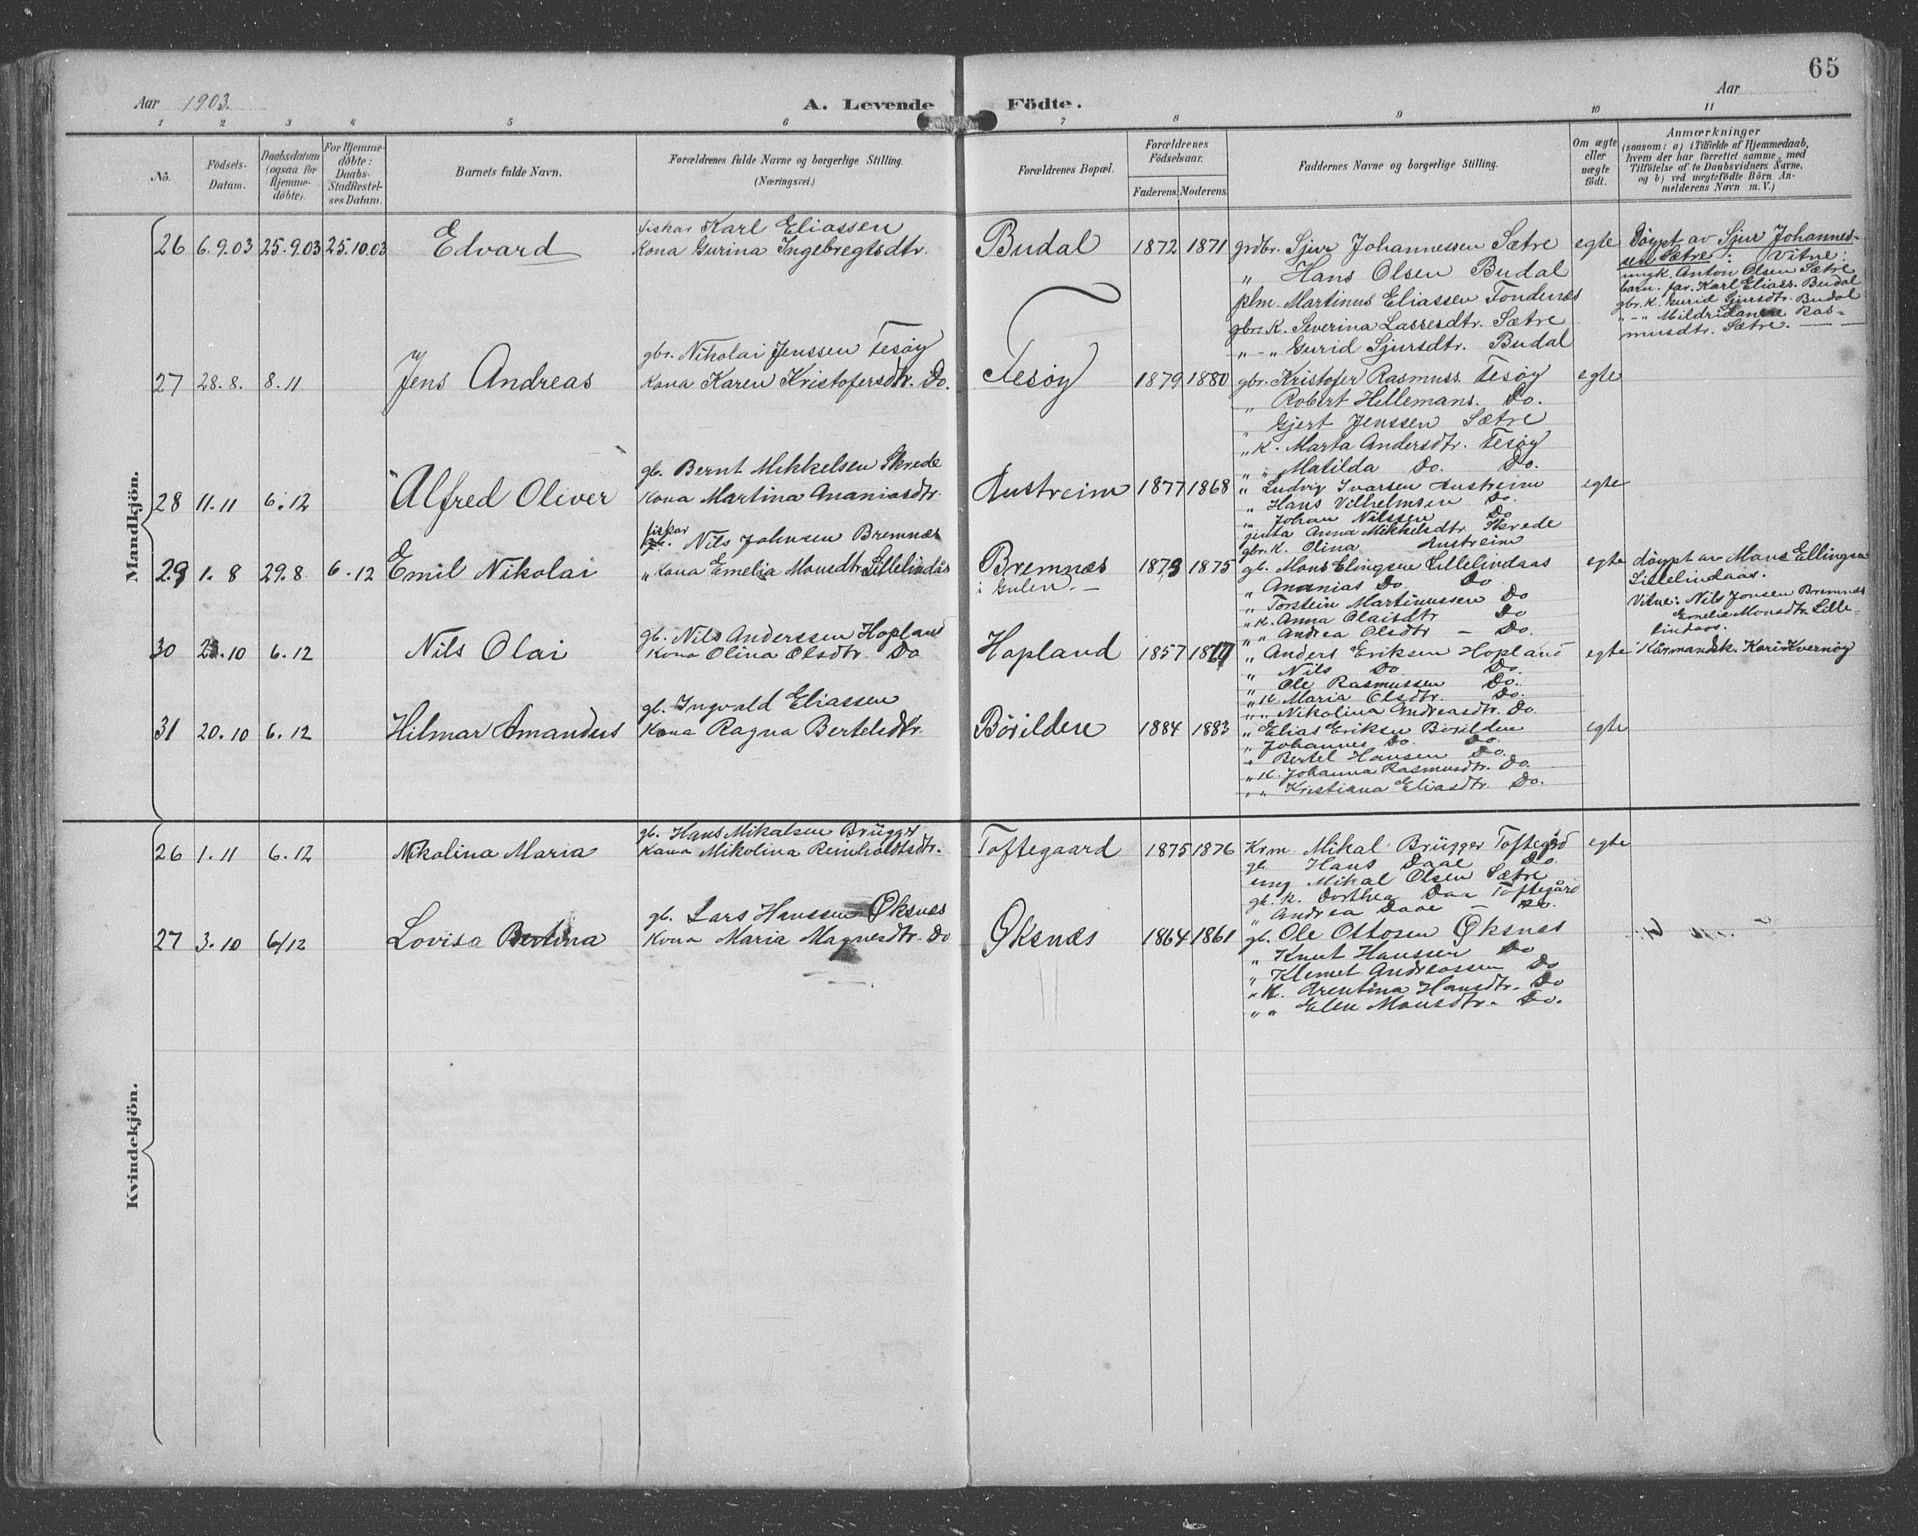 65
Aar 1903.
A. Levende Födte.
Aar
1 2 3 4 5 6 7 8 9 10 11
No.
Födsels-
Datum.
Daabsdatum
(ogsaa for
Hjemme-
döbte).
For Hjemme-
döbte:
Daabs-
Stadfæstel-
ses Datum.
Barnets fulde Navn.
Forældrenes fulde Navne og borgerlige Stilling.
(Næringsvei.)
Forældrenes Bopæl.
Forældrenes
Födselsaar.
Faderens. Moderens.
Faddernes Navne og borgerlige Stilling.
Om ægte
eller
uægte
födt.
Anmærkninger
(saasom: a) i Tilfælde af Hjemmedaab,
hvem der har forrettet samme, med
Tilföielse af to Daabsvidners Navne,
og b) ved uægtefödte Börn An-
melderens Navn m. V.)
Mandkjön.
26 6.9.03 25.9.03 25.10.03 Edvard
fiskar Karl Eliassen
Kona Gurina Ingebregtsdtr.
Budal 1872 1871
grdbr. Sjur Johannessen Sætre egte
„ Hans Olsen Budal
plm. Martinus Eliassen Tondenæs
gbr. K. Severina Lassesdtr. Sætre
„ - „ Gurid Sjursdtr. Budal
Döypt av Sjur Johannes-
sen Sætre: Vitne:
ungk. Anton Olsen Sætre
barn. far. Karl Eliass. Budal
gbr. K. Gurid Sjursdtr. Budal
„ - „ Mildrid Ras-
musdtr. Sætre. — —
27 28.8. 8.11 Jens Andreas
gbr. Nikolai Jenssen Tesöy
Kona Karen Kristofersdtr. Do.
Tesöy 1879 1880
gbr. Kristofer Rasmuss. Tesöy egte
„ Robert Hillemans. Do.
„ Gjert Jenssen Sætre
„ K. Marta Andersdtr. Tesöy
„ „ Matilda Do. Do.
28 11.11 6.12 Alfred Oliver
gb. Bernt Mikkelsen Skrede
Kona Martina Ananiasdtr.
Austreim 1877 1868
„ Ludvig Ivarsen Austreim egte
„ Hans Vilhelmsen Do.
„ Johan Nilssen Do
jenta Anna Mikkelsdtr Skrede
gbr. K. Olina Austreim
29 1.8 29.8 6.12 Emil Nikolai
fiskar
gb. Nils Johnsen Bremnæs
„ Kona Emelia Monsdtr. Lillelindås
Bremnæs
i Gulen. —
1873 1875
gb. Mons Elingsen Lillelindaas egte
„ Ananias Do Do
„ Torstein Martinussen Do
„ K. Anna Olaisdtr Do
„ „ Andrea Olsdtr — Do.
döypt av Mons Ellingsen
Lillelindaas.
Vitne: Nils Jonsen Bremnæs
Emelia Monsdtr. Lille-
lindaas.
30 23.10 6.12 Nils Olai
gb. Nils Anderssen Hopland
Kona Olina Olsdtr. Do
Hopland 1857
„ Anders Eriksen Hopland egte
„ Nils Do Do.
„ Ole Rasmussen Do.
„ K. Maria Olsdtr. Do.
„ „ Nikolina Andreasdtr. Do.
Kårmandsk. Kari Hvernöy
31 20.10 6.12 Hilmar Amandus
gb. Ingvald Eliassen
Kona Ragna Bertelsdtr.
Börilden 1884 1883
„ Elias Eriksen Börilden egte
„ Johannes Do. Do.
„ Bertel Hansen Do.
„ K. Johanna Rasmusdtr. Do.
„ „ Kristiana Eliasdtr. Do.
Kvindekjön.
26 1.11 6.12 Nikolina Maria
gb. Hans Mikalsen Brügger
Kona Mikolina Reinholdtsdtr.
Toftegaard 1875 1876
Krm. Mikal Brügger Toftegrd egte
gb. Hans Daae Do.
ung Mikal Olsen Sætre
gb. K. Dorthea Daa Toftegård
„ Andrea Daae — Do.
27 3.10 6/12 Lovisa Bertina
gb. Lars Hanssen Øksnæs
Kona Maria Magnesdtr. Do
Øksnæs 1864 1861
gb. Ole Ottosen Øksnæs
„ Knut Hanssen Do
„ Klemet Andreassen Do
„ K. Arentina Hansdtr. Do
„ „ Elen Monsdtr. Do.